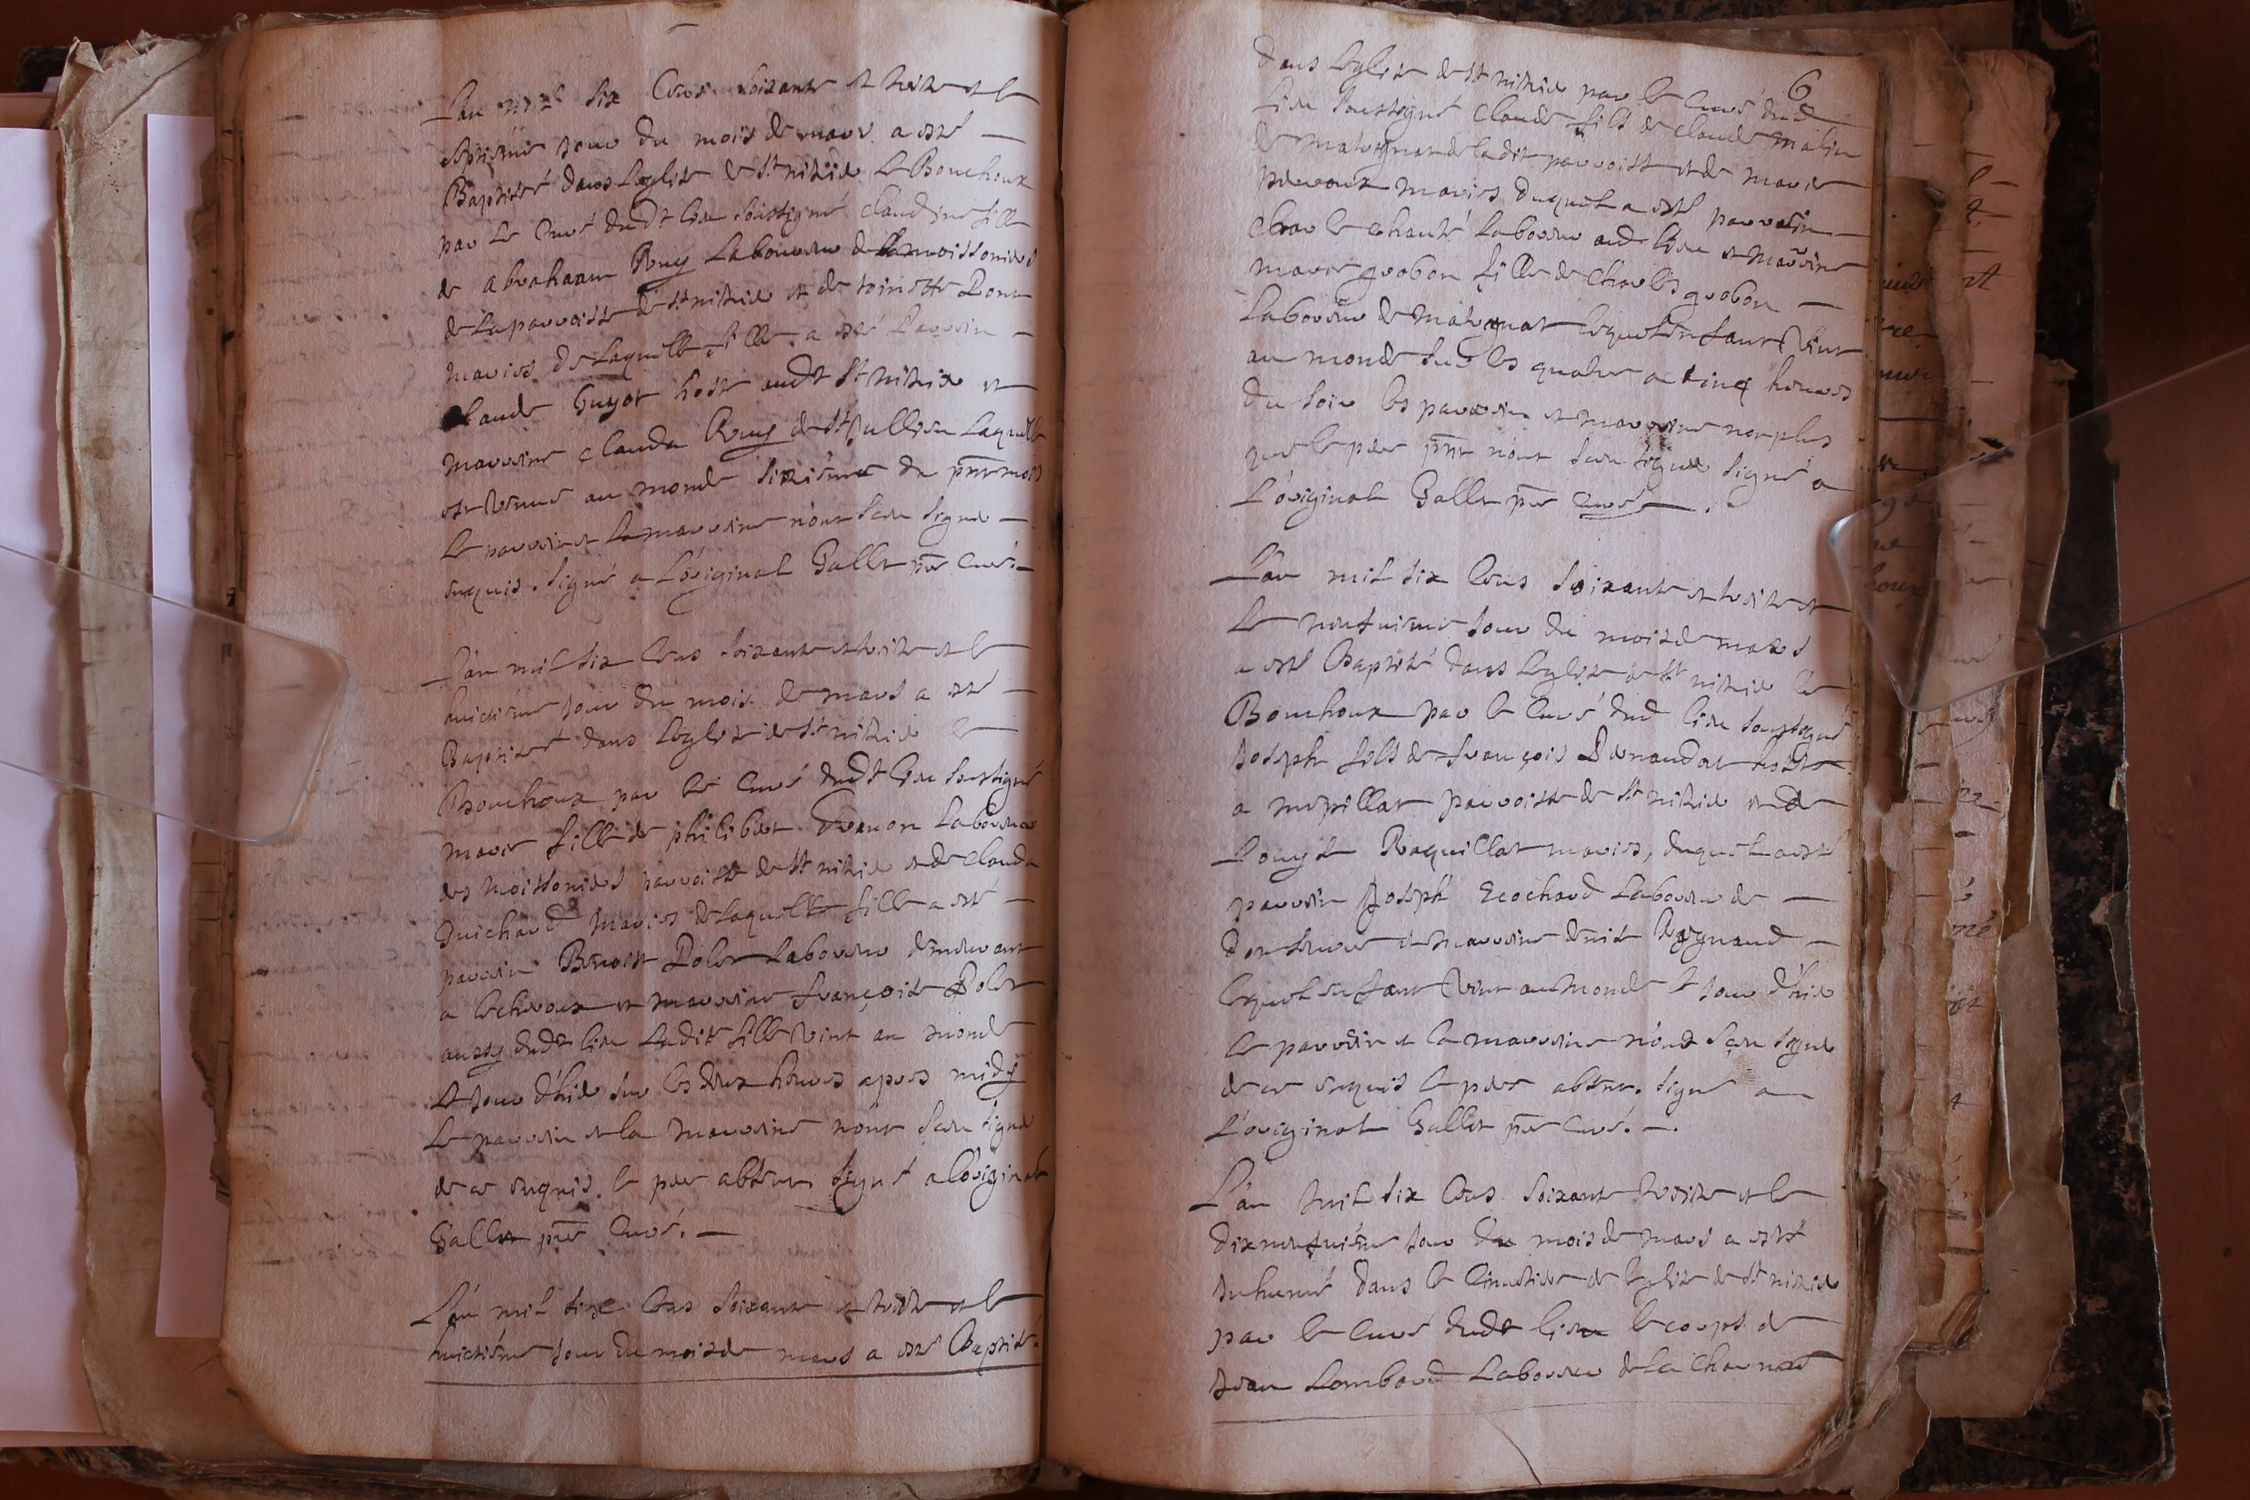 L'an mil six Cens soixante et treize et le
septième jour du mois de mars a esté
Baptisée dans leglise de st nisié Le Bouchoux
par Le Curé dudt lieu soussigné Claudine fille
de abraham Laboureur de moissonier
de La parroisse de st nisié et de toinette
mariés de Laquelle fille a esté Parrain
Claude Guyot hoste audt st nisié et
marraine Clauda de st Jullien Laquelle
est venue au monde sixième du pnt mois
Le parrain et La marraine n'ont sceu signer
enquis. signé a L'original Gallet pre Curé
L'an mil six Cens soixante et treize et le
huictième jour du mois de mars a esté
Baptisée dans Leglise de st nisié le
Bouchoux par le Curé dudt lieu soussigné
marie fille de philibert Laboureur
des moissoniers parroisse de st nisié et de Clauda
Guichard mariés de Laquelle fille a esté
parrain Benoist Polet Laboureur demeurant
a et marraine françoise Polet
aussy dudt lieu Ladite fille vint au monde
Le jour d'hier sur les deux heures apres midy
Le parrain et la marraine n'ont sceu signer
de ce enquis. le pere absent signé a Loriginal
Gallet pre Curé.
L'an mil six Cens soixante et treize et le
huictième jour du mois de mars a esté Baptisé
6
dans Leglise de st nisié par le Curé dud
lieu soussigné Claude fils de Claude malin
de matignat de ladite parroisse et de marie
mariés duquel a esté parrain
Charle Laboureur aud lieu et marraine
marie grobon fille de Charles grobon
Laboureur de matignat lequel enfant vint
au monde sur les quatre a cinq heures
du soir les parrain et marraine non plus
que le pere pnt n'ont sceu signer signé a
L'original Gallet pre Curé.
L'an mil six Cens soixante et treize et
Le neufuieme jour du mois de mars
a esté Baptisé dans Leglise de st nisié le
Bouchoux par le Curé dud lieu soussigné
Joseph fils de françois Perraudat hoste
a mepillat parroisse de st nisié et de
Raquillat mariés, duquel a esté
parrain Joseph Ecochard Laboureur de
et marraine denise
Lequel enfant vint au monde le jour d'hier
Le parrain et la marraine n'ont sceu signer
de ce enquis le pere absent. signé a
L'original Gallet pre Curé.
L'an mil six Cens soixante treize et le
dixneufuième jour du mois de mars a esté
Inhumé dans le Cimetiere de leglise de st nisié
par le Curé dudt lieu le corps de
Jean Lombard Laboureur de la